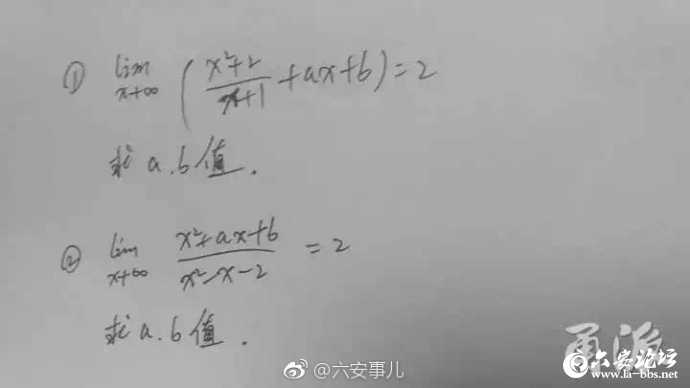 ① lim x→∞ (x²+2/x+1 + ax+b) = 2
求 a.b 值.
② lim x→∞ x²+ax+b/x²-x-2 = 2
求 a.b 值.
@六安事儿
六安论坛
www.la-bbs.net